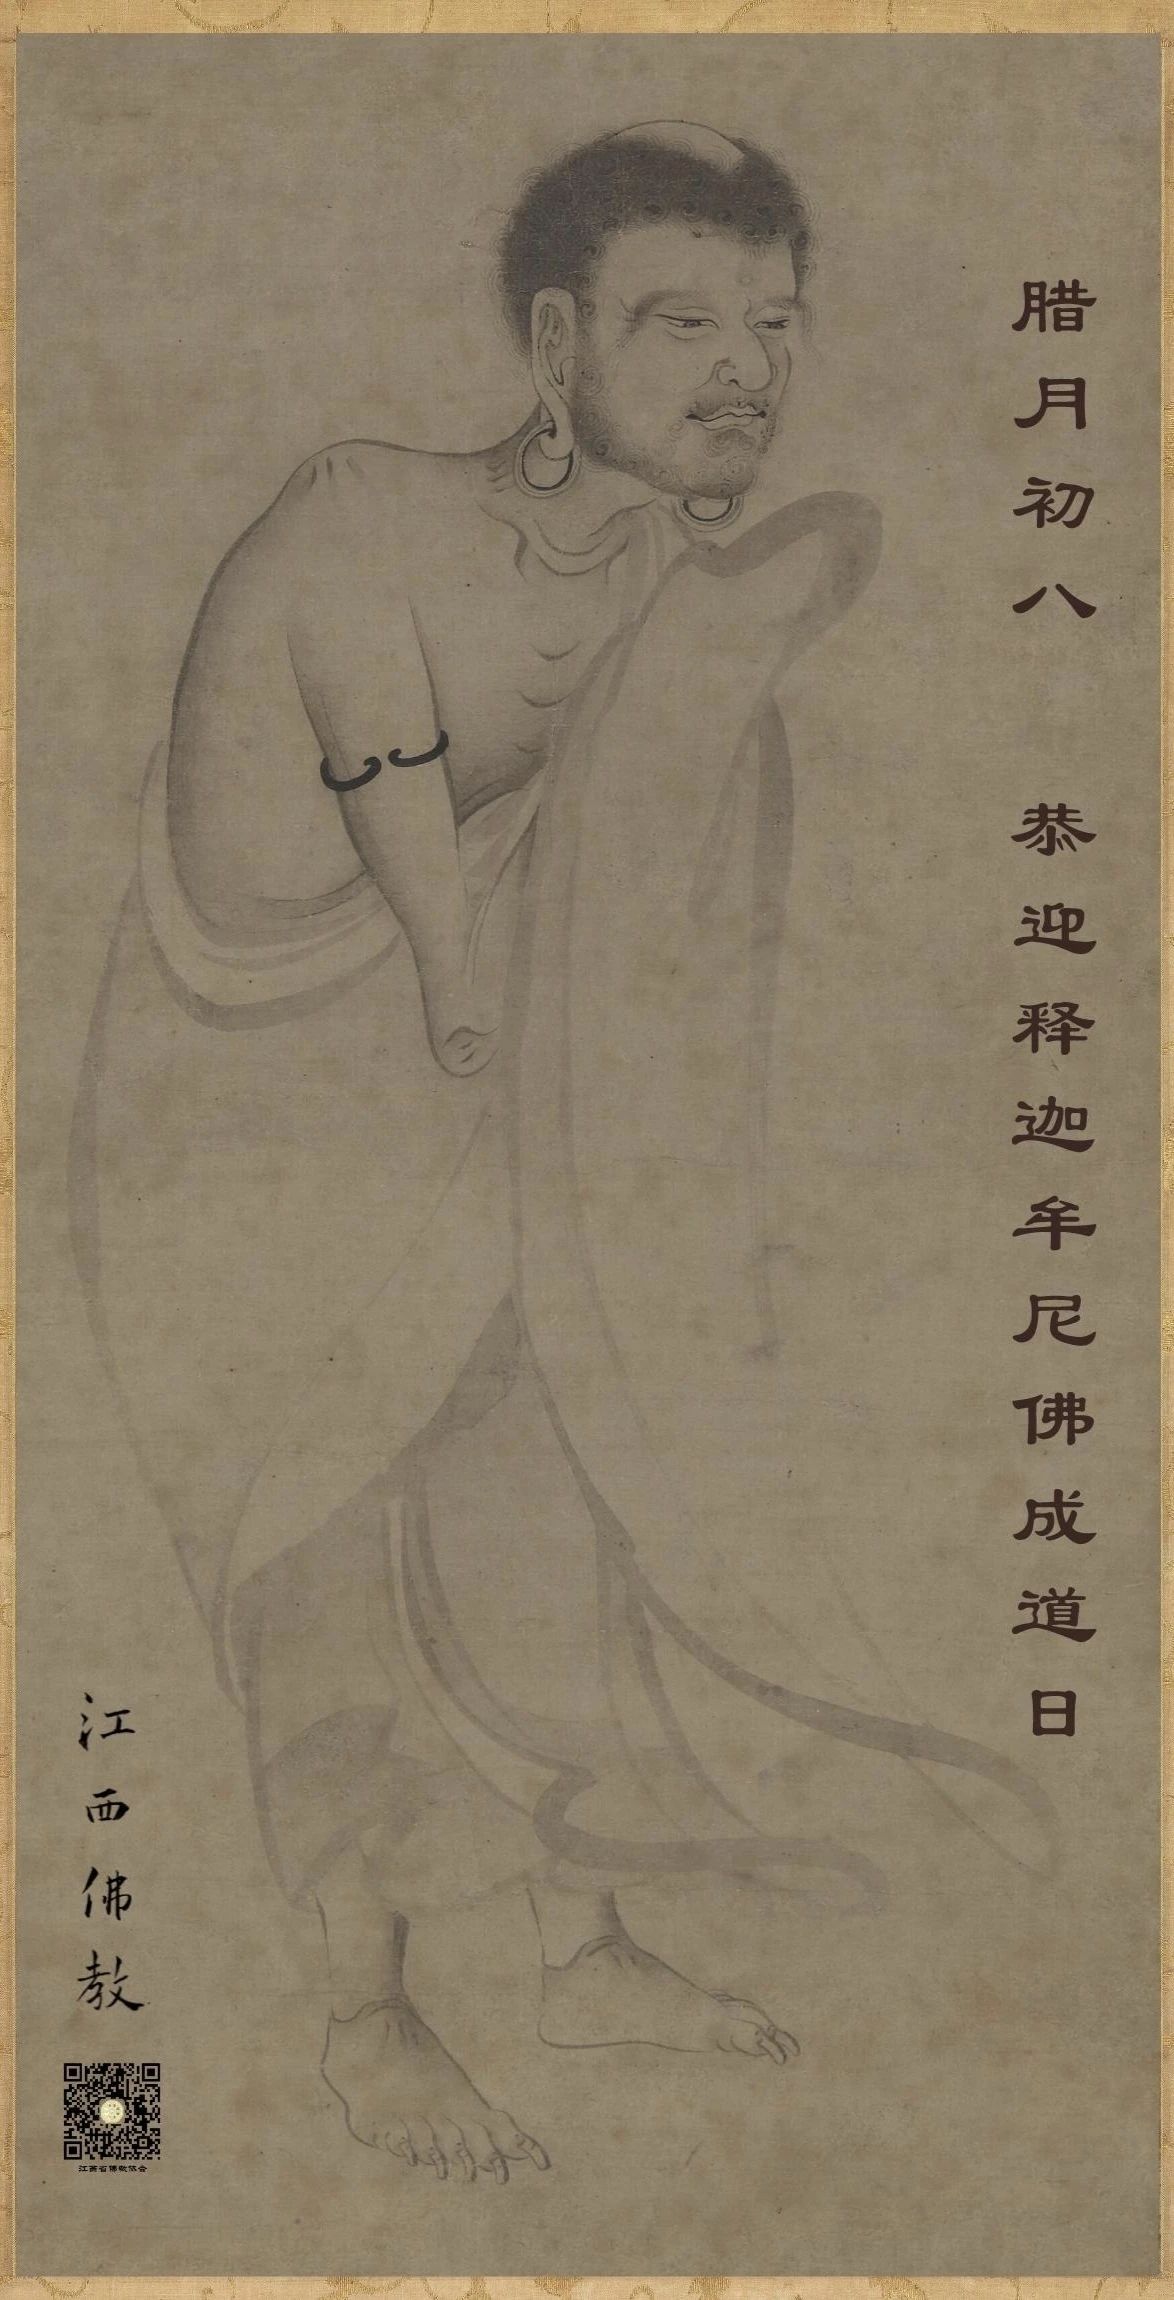 腊月初八 恭迎释迦牟尼佛成道日
江西佛教
江西省佛教协会